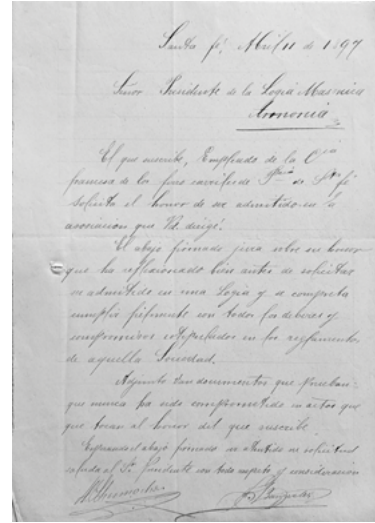 Santa fé, Abril 11 de 1897
Señor Presidente de la Logia Masonica
Armonia
El que suscribe, Empleado de la Cia
francesa de los ferro carriles de Sta fé
solicita el honor de ser admitido en la
asociacion que Vd. dirige.
El abajo firmado jura sobre su honor
que ha reflexionado bien antes de solicitar
ser admitido en una Logia y se
cumplir fielmente con todos los deberes y
compromisos estipulados en los reglamentos
de aquella Sociedad.
Adjunto van documentos que prueban
que nunca ha sido comprometido en actos que
que tocan al honor del que suscribe.
Esperando el abajo firmado su solicitud
saluda al Sr. Presidente con todo respeto y consideración